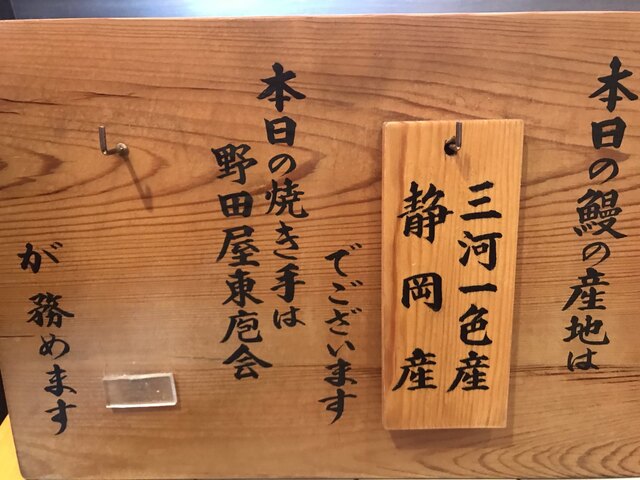 本日の鰻の産地は
三河一色産
静岡産
でございます
本日の焼き手は
野田屋東庖会
が務めます